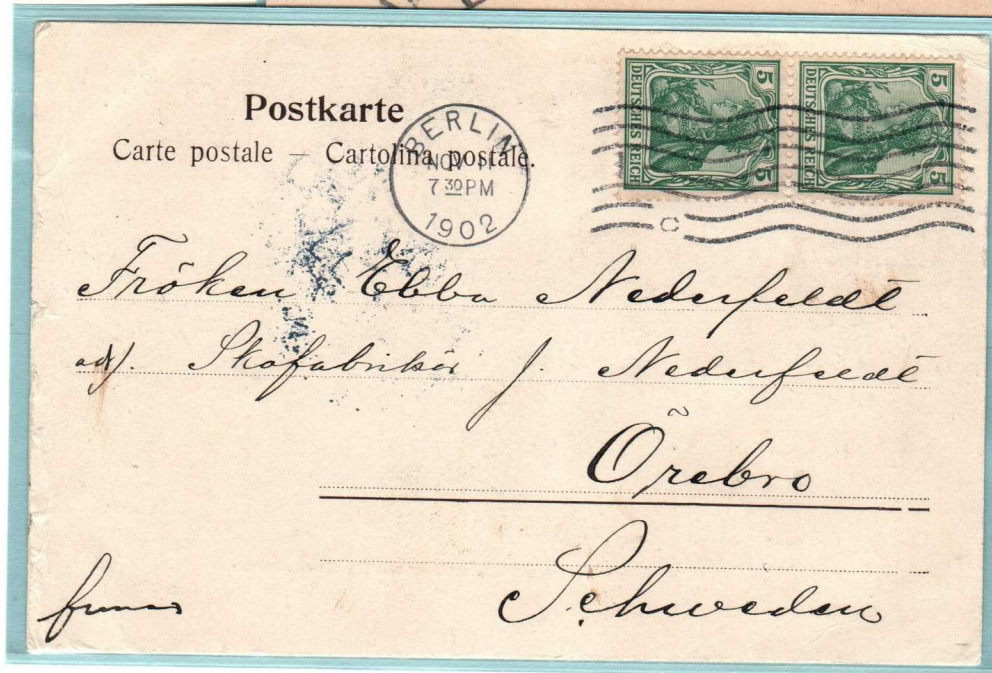 Postkarte
Carte postale – Cartolina postale.
BERLIN
NOV 11
7 30 PM
1902
5 DEUTSCHES REICH 5
5 DEUTSCHES REICH 5
C
Fröken Ebba Nederfeldt
adr. Skofabrikör J. Nederfeldt
Örebro
Schweden